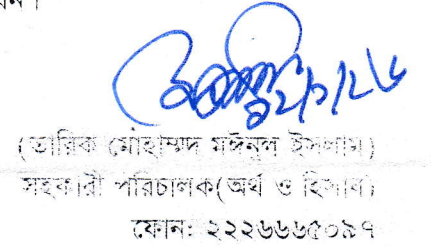 ১২/১/২৬
(তারিক মোহাম্মদ মঈনুল ইসলাম)
সহকারী পরিচালক(অর্থ ও হিসাব)
ফোন: ২২২৬৬৬৫০৯৭